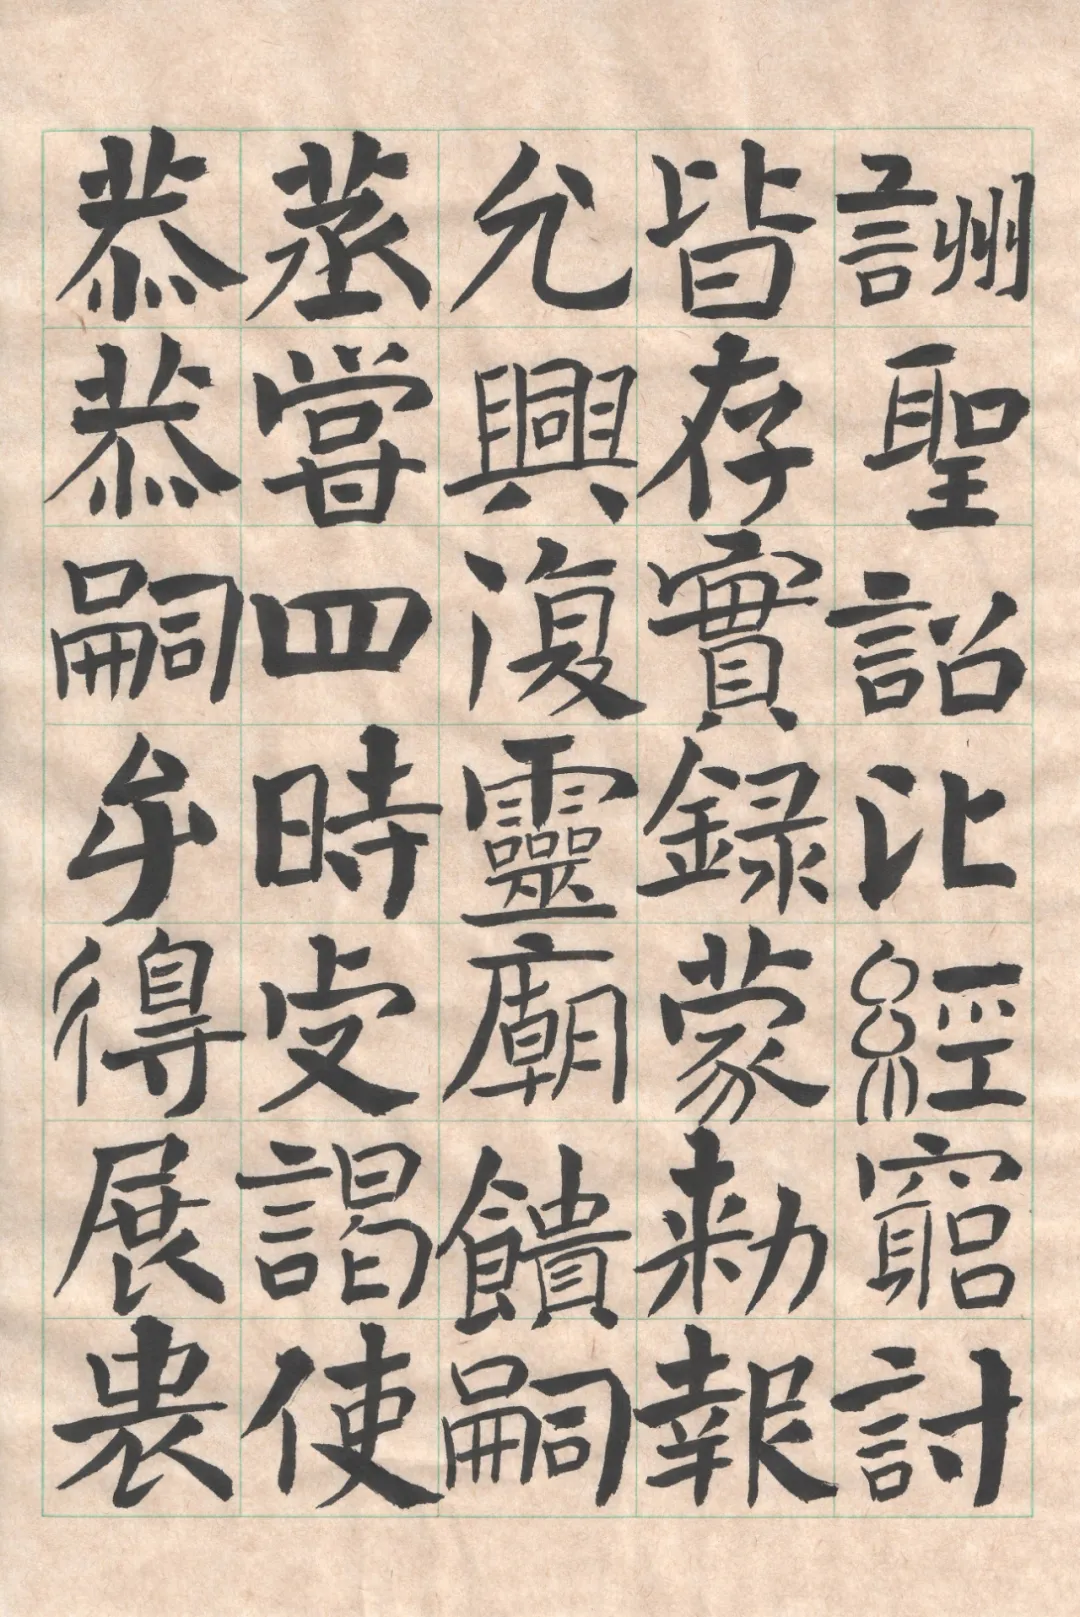 詶聖詔比經窮討
皆存實録蒙勑報
允興復靈廟饋嗣
蒸嘗四時受謁使
恭恭嗣牟得展衷